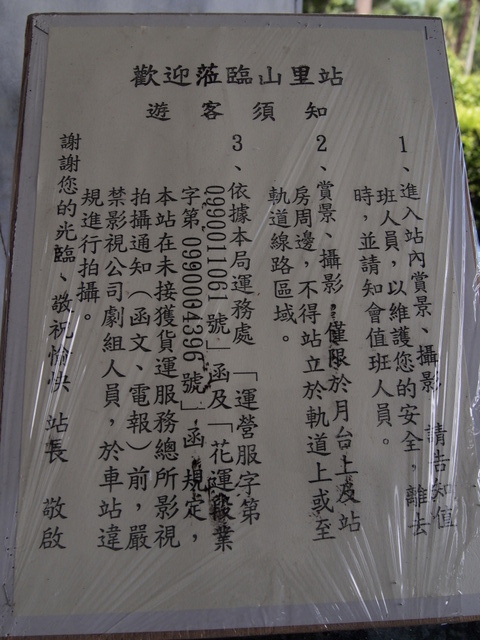 歡迎蒞臨山里站
遊客須知
1、進入站內賞景、攝影 請告知值
班人員，以維護您的安全，離去
時，並請知會值班人員。
2、賞景、攝影，僅限於月台上及站
房周邊，不得站立於軌道上或至
軌道線路區域。
3、依據本局運務處 「運營服字第
0990011061號」函及「花運段業
字第0990004396號」函 規定，
本站在未接獲貨運服務總所影視
拍攝通知（函文、電報）前，嚴
禁影視公司劇組人員，於車站違
規進行拍攝。
謝謝您的光臨、敬祝愉快 站長 敬啟